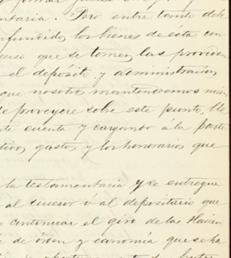 formar
ntaria. Pero entre tanto debe
nfundido, los bienes de esta con
cuse que se tomen las provien
el depósito y administracion
que nosotros mantenemos
de proveyere sobre este punto. 
cuenta y cargando á la parte
tivos gastos y los honorarios que
la testamentaria y se entregue
al sucesor ó al depositario que
continuar el giro de las Hacien
de órden y economía que se ha